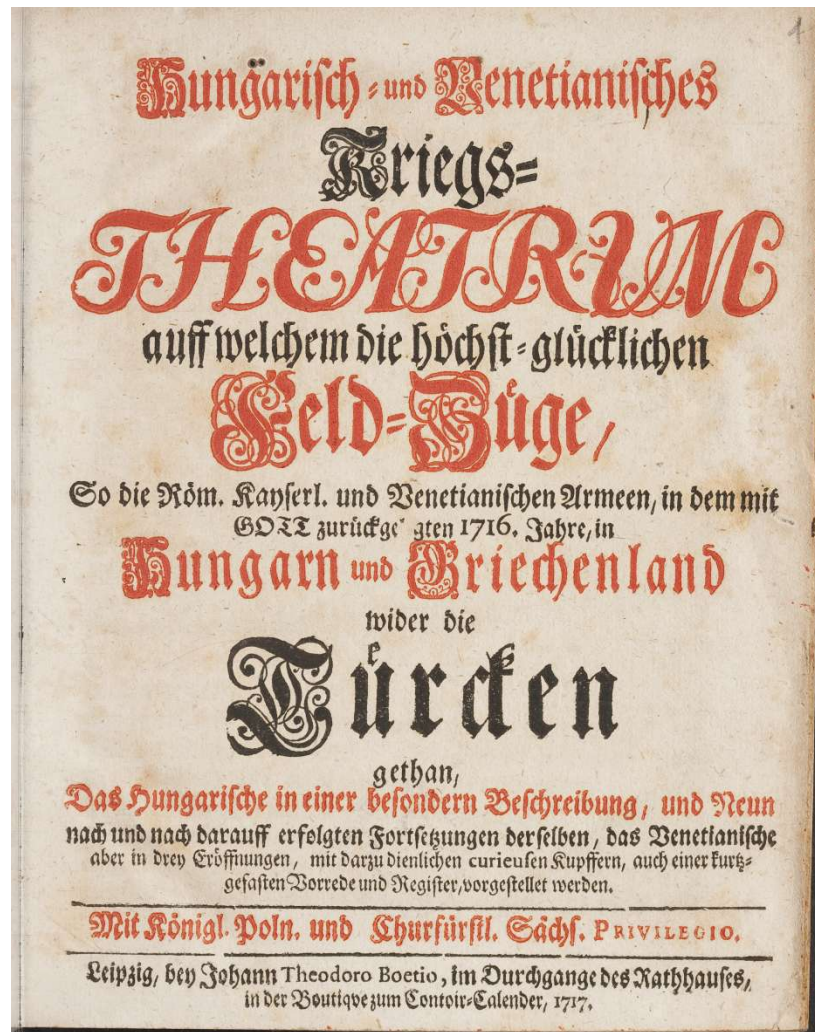 1
Hungärisch- und Venetianisches
Kriegs-
THEATRUM
auff welchem die höchst-glücklichen
Feld-Züge,
So die Röm. Kayserl. und Venetianischen Armeen, in dem mit
GOTT zurückge gten 1716. Jahre, in
Hungarn und Griechenland
wider die
Türcken
gethan,
Das Hungarische in einer besondern Beschreibung, und Neun
nach und nach darauff erfolgten Fortsetzungen derselben, das Venetianische
aber in drey Eröffnungen, mit darzu dienlichen curieusen Kupffern, auch einer kurtz-
gefasten Vorrede und Register, vorgestellet werden.
Mit Königl. Poln. und Churfürstl. Sächs. PRIVILEGIO.
Leipzig, bey Johann Theodoro Boetio, im Durchgange des Rathhauses,
in der Boutiqve zum Contoir-Calender, 1717.